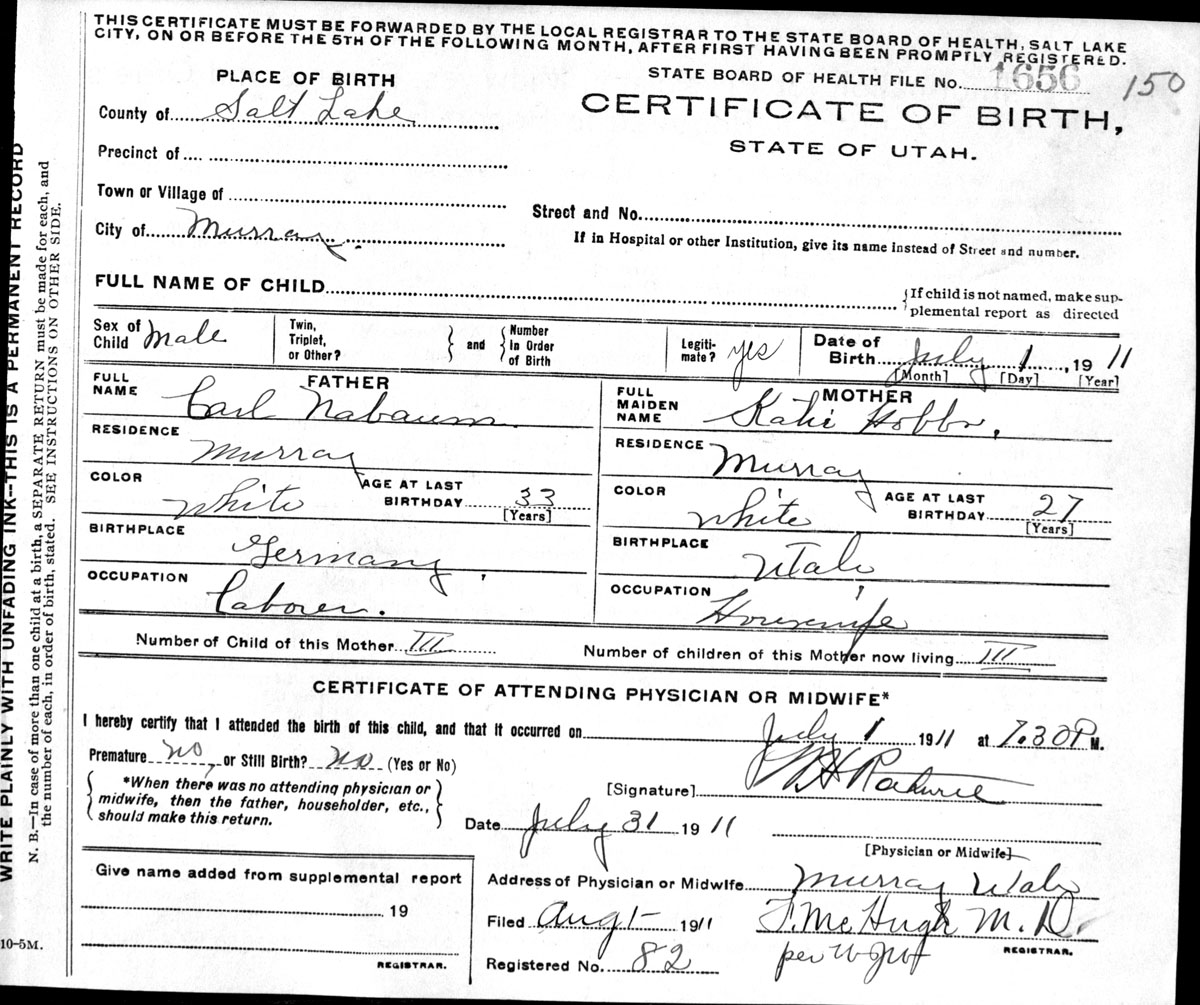 THIS CERTIFICATE MUST BE FORWARDED BY THE LOCAL REGISTRAR TO THE STATE BOARD OF HEALTH, SALT LAKE
CITY, ON OR BEFORE THE 5TH OF THE FOLLOWING MONTH, AFTER FIRST HAVING BEEN PROMPTLY REGISTERED.
PLACE OF BIRTH
STATE BOARD OF HEALTH FILE No. 1656 150
County of Salt Lake
CERTIFICATE OF BIRTH,
STATE OF UTAH.
Precinct of
Town or Village of
Street and No.
City of Murray
If in Hospital or other Institution, give its name instead of Street and number.
FULL NAME OF CHILD
{If child is not named, make sup-
plemental report as directed
Sex of Child Male
Twin, Triplet, or Other?
} and {
Number In Order of Birth
Legiti-mate? yes
Date of Birth July 1, 1911
[Month] [Day] [Year]
FATHER
FULL NAME Carl Nabaum
RESIDENCE Murray
COLOR White
AGE AT LAST BIRTHDAY 33
[Years]
BIRTHPLACE Germany,
OCCUPATION Laborer.
MOTHER
FULL MAIDEN NAME Katie Hobbs,
RESIDENCE Murray
COLOR White
AGE AT LAST BIRTHDAY 27
[Years]
BIRTHPLACE Utah
OCCUPATION Housewife
Number of Child of this Mother III
Number of children of this Mother now living III
CERTIFICATE OF ATTENDING PHYSICIAN OR MIDWIFE*
I hereby certify that I attended the birth of this child, and that it occurred on July 1 1911 at 7.30 P M.
Premature no, or Still Birth? no (Yes or No)
{ *When there was no attending physician or
midwife, then the father, householder, etc.,
should make this return. }
[Signature]
Date July 31 1911
[Physician or Midwife]
Give name added from supplemental report
19
REGISTRAR.
Address of Physician or Midwife Murray Utah
Filed Aug 1- 1911
F. McHugh M.D.
REGISTRAR.
Registered No. 82
per
WRITE PLAINLY WITH UNFADING INK--THIS IS A PERMANENT RECORD
N. B.—In case of more than one child at a birth, a SEPARATE RETURN must be made for each, and
the number of each, in order of birth, stated. SEE INSTRUCTIONS ON OTHER SIDE.
10-5M.